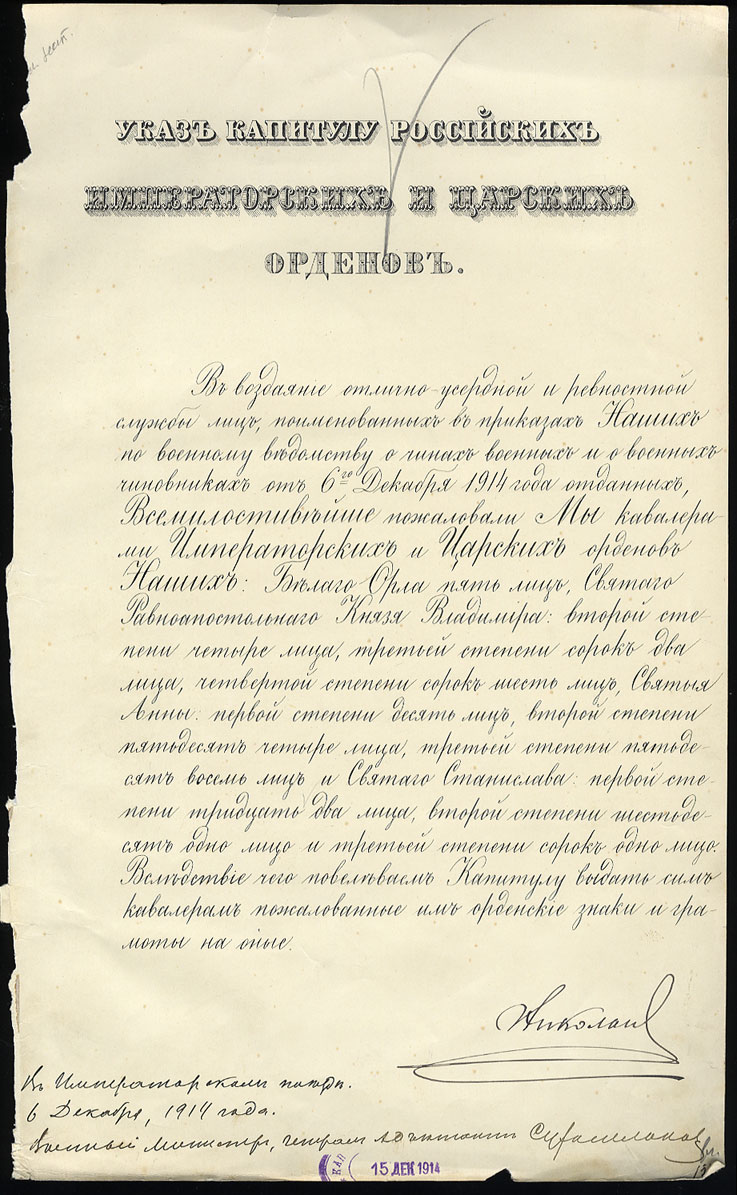 УКАЗЪ КАПИТУЛУ РОССІЙСКИХЪ
ИМПЕРАТОРСКИХЪ И ЦАРСКИХЪ
ОРДЕНОВЪ.
Въ воздаяніе отлично-усердной и ревностной
службы лицъ, поименованныхъ въ приказахъ Нашихъ
по военному вѣдомству о чинахъ военныхъ и о военныхъ
чиновникахъ отъ 6го Декабря 1914 года отданныхъ,
Всемилостивѣйше пожаловали Мы кавалера-
ми Императорскихъ и Царскихъ орденовъ
Нашихъ: Бѣлаго Орла пять лицъ, Святаго
Равноапостольнаго Князя Владиміра: второй сте-
пени четыре лица, третьей степени сорокъ два
лица, четвертой степени сорокъ шесть лицъ, Святыя
Анны: первой степени десять лицъ, второй степени
пятьдесятъ четыре лица, третьей степени пятьде-
сятъ восемь лицъ и Святаго Станислава: первой сте-
пени тридцать два лица, второй степени шестьде-
сятъ одно лицо и третьей степени сорокъ одно лицо.
Вслѣдствіе чего повелѣваемъ Капитулу выдать симъ
кавалерамъ пожалованные имъ орденскіе знаки и гра-
моты на оные.
Николай
Въ Императорскомъ поѣздѣ.
6 Декабря, 1914 года.
Военный Министръ, генералъ адъютантъ Сухомлиновъ
КАП
15 ДЕК 1914